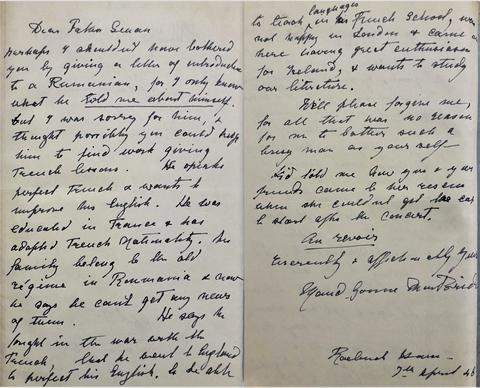 Dear Father Senan
perhaps I shouldn't have bothered
you by giving a letter of introduction
to a Rumanian, for I only know
what he told me about himself.
but I was sorry for him, &
thought possibly you could help
him to find work giving
French lessons. He speaks
perfect French & wants to
improve his English. He was
educated in France & has
adopted French Nationality. His
family belong to the old
régime in Rumania & now
he says he can't get any news
of them. He says he
fought in the war with the
French, that he went to England
to perfect his English, to be able
to teach languages in French School, was
not happy in London & came
here having great enthusiasm
for Ireland, & wants to study
our literature.
Will please forgive me,
for all that was no reason
for me to bother such a
busy man as yourself
told me how you & your
friends came to her rescue
when she couldn't get the car
to start after the concert.
Au revoir
reverently & affectionately yours
Maud Gonne MacBride
Roebuck House
7th April 48